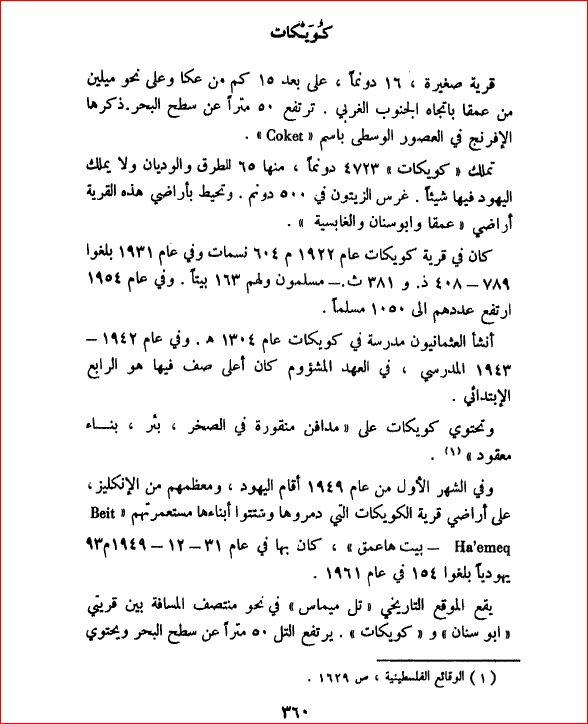 كُوَيْكات
قرية صغيرة ، ١٦ دونماً ، على بعد ١٥ كم من عكا وعلى نحو ميلين
من عمقا باتجاه الجنوب الغربي . ترتفع ٥٠ متراً عن سطح البحر. ذكرها
الإفرنج في العصور الوسطى باسم « Coket » .
تملك « كويكات » ٤٧٢٣ دونماً ، منها ٦٥ للطرق والوديان ولا يملك
اليهود فيها شيئاً . غرس الزيتون في ٥٠٠ دونم . وتحيط بأراضي هذه القرية
أراضي « عمقا وابوسنان والغابسية » .
كان في قرية كويكات عام ١٩٢٢ م ٦٠٤ نسمات وفي عام ١٩٣١ بلغوا
٧٨٩ – ٤٠٨ ذ. و ٣٨١ ث. – مسلمون ولهم ١٦٣ بيتاً . وفي عام ١٩٥٤
ارتفع عددهم الى ١٠٥٠ مسلماً .
أنشأ العثمانيون مدرسة في كويكات عام ١٣٠٤ ه . وفي عام ١٩٤٢ –
١٩٤٣ المدرسي ، في العهد المشؤوم كان أعلى صف فيها هو الرابع
الإبتدائي .
وتحتوي كويكات على « مدافن منقورة في الصخر ، بئر ، بنــاء
معقود » (١) .
وفي الشهر الأول من عام ١٩٤٩ أقام اليهود ، ومعظمهم من الإنكليز ،
على أراضي قرية الكويكات التي دمروها وشتتوا أبناءها مستعمرتهم « Beit
Ha'emeq – بيت هاعمق » ، كان بها في عام ٣١ – ١٢ – ١٩٤٩م ٩٣
يهودياً بلغوا ١٥٤ في عام ١٩٦١ .
يقع الموقع التاريخي « تل ميماس » في نحو منتصف المسافة بين قريتي
« ابو سنان » و « كويكات » . يرتفع التل ٥٠ متراً عن سطح البحر ويحتوي
(١) الوقائع الفلسطينية ، ص ١٦٢٩ .
٣٦٠